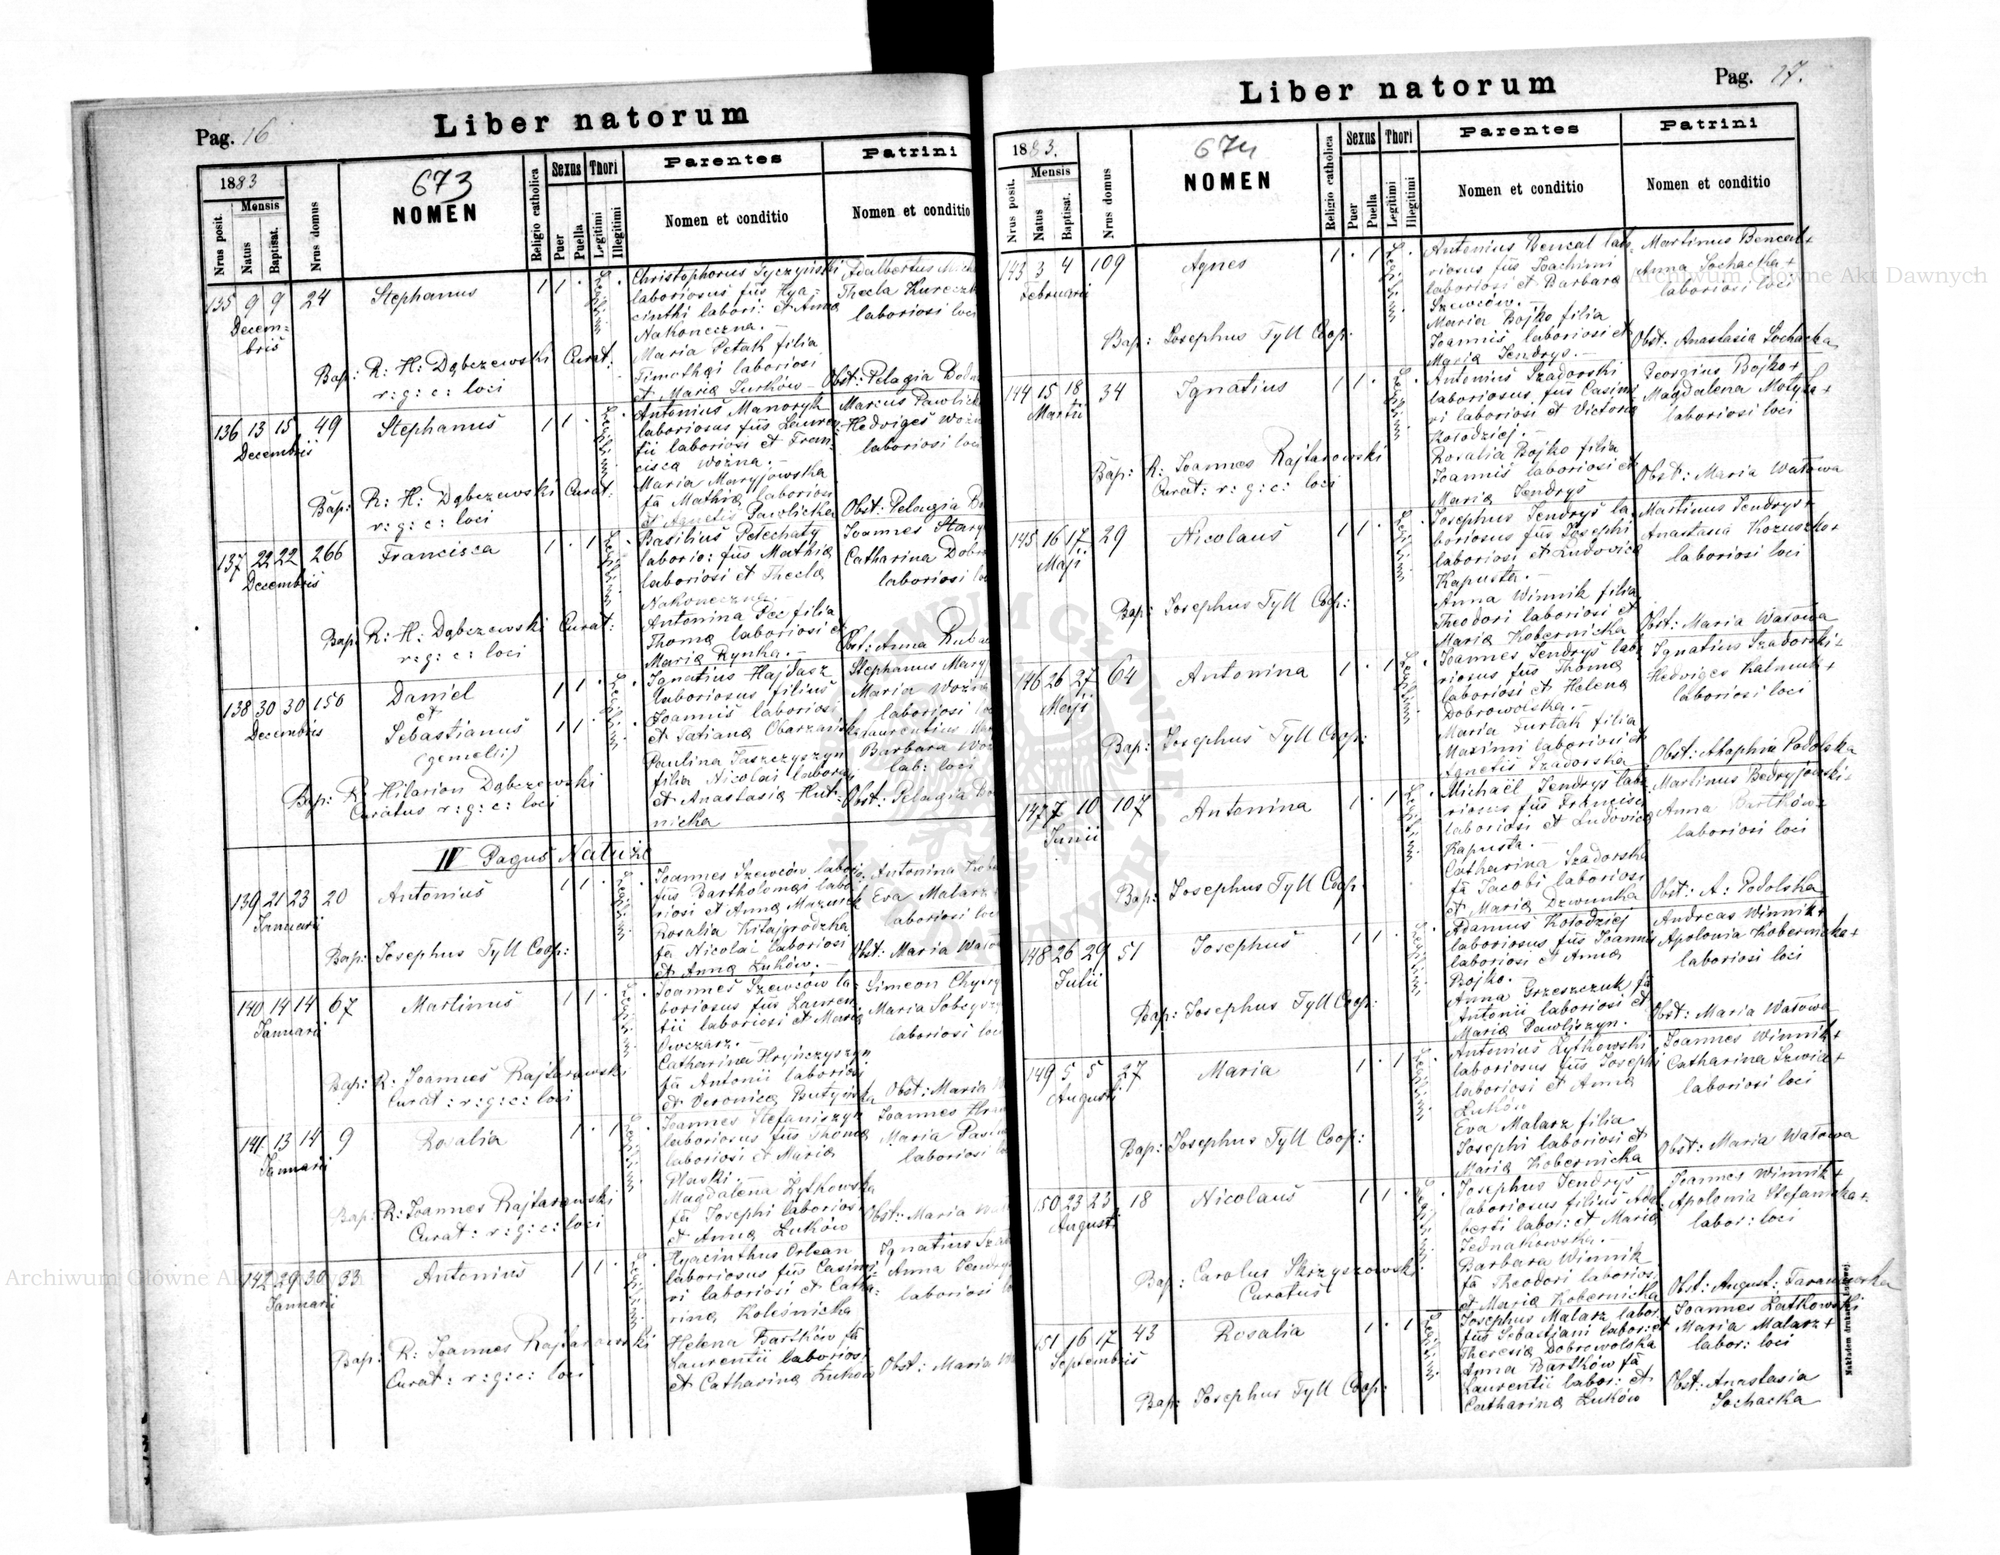 Pag. 16
Liber natorum
1883
Mensis
Nrus posit.
Natus
Baptisat.
Nrus domus
673
NOMEN
Religio catholica
Sexus
Puer
Puella
Thori
Legitimi
Illegitimi
Parentes
Nomen et conditio
Patrini
Nomen et conditio
135 9 9 24 Stephanus 1 1
Decem-
bris
Christophorus Tyczyński
laboriosus fius Hya-
cinthi labori: et Anna
Nakoneczna.
Maria Petak filia
Timothei laboriosi
et Maria Turków
Adalbertus
Thecla Kureczk
laboriosi loci
Bap: R: H: Dąbczewski Curat:
r: g: c: loci
Obst: Pelagia Bod
136 13 15 49 Stephanus 1 1
Decembris
Antonius Manoryk
laboriosus fius Lauren-
tii laboriosi et Fran-
cisca Woźna.
Maria Maryjowska
fa Mathia laboriosi
et Agnetis Pawlicka
Marcus Pawlick
Hedviges Woźn
laboriosi loci
Bap: R: H: Dąbczewski Curat:
r: g: c: loci
Obst: Pelagia B
137 22 22 266 Francisca 1 1
Decembris
Basilius Petechaty
laborio: fius Mathia
laboriosi et Thecla
Nakoneczna.
Antonina Pec filia
Thoma laboriosi et
Maria Rynka.
Joannes Stary
Catharina Dobro
laboriosi lo
Bap: R: H: Dąbczewski Curat:
r: g: c: loci
Obst: Anna Ruba
138 30 30 156 Daniel 1 1
Decembris
et
Sebastianus 1 1
(gemelii)
Ignatius Hajdasz
laboriosus filius
Joannis laboriosi
et Tatiana Obarzańsk
Paulina Jaszczyszyn
filia Nicolai laboriosi
et Anastasia Hut-
nicka
Stephanus Mary
Maria Woźna
laboriosi lo
Laurentius Mar
Barbara Woź
lab: loci
Bap: R: Hilarion Dąbczewski
Curatus r: g: c: loci
Obst: Pelagia Bo
IV Pagus Natuże
139 21 23 20 Antonius 1 1
Januarii
Joannes Szewców labori-
fius Bartholomei labo-
riosi et Anna Mazurek
Rosalia Kitajgrodzka
fa Nicolai laboriosi
et Anna Łuków.
Antonina
Eva Malarz
laboriosi loci
Bap: Josephus Tyll Coop:
Obst: Maria Wato
140 14 14 67 Martinus 1 1
Januarii
Joannes Szewców la-
boriosus fius Lauren-
tii laboriosi et Maria
Owczarz.
Catharina Hryńczyszyn
fa Antonii laboriosi
et Veronica Butyńska
Simeon Chy
Maria Sobe
laboriosi loci
Bap: R: Joannes Rajtarowski
Curat: r: g: c: loci
Obst: Maria
141 13 14 9 Rosalia 1 1
Januarii
Joannes Stefaniszyn
laboriosus fius Thoma
laboriosi et Maria
Płaski.
Magdalena Żytkowska
fa Josephi laboriosi
et Anna Łuków
Joannes Hra
Maria Pas
laboriosi lo
Bap: R: Joannes Rajtarowski
Curat: r: g: c: loci
Obst: Maria
142 29 30 33 Antonius 1 1
Januarii
Hyacinthus Orlean
laboriosus fius Casimi-
ri laboriosi et Catha-
rina Koleśnicka
Helena Bartków fa
Laurentii laboriosi
et Catharina Łuków
Ignatius Sza
Anna Jendry
laboriosi lo
Bap: R: Joannes Rajtarowski
Curat: r: g: c: loci
Obst: Maria
Liber natorum
Pag. 17.
1883.
Mensis
Nrus posit.
Natus
Baptisat.
Nrus domus
674
NOMEN
Religio catholica
Sexus
Puer
Puella
Thori
Legitimi
Illegitimi
Parentes
Nomen et conditio
Patrini
Nomen et conditio
143 3 4 109 Agnes 1 1
Februarii
Antonius Bencal labo-
riosus fius Joachimi
laboriosi et Barbara
Szewców.
Maria Bojko filia
Joannis laboriosi et
Maria Jendrys.
Martinus Bencal +
Anna Sochacka +
laboriosi loci
Bap: Josephus Tyll Coop:
Obst: Anastasia Sochacka
144 15 18 34 Ignatius 1 1
Martii
Antonius Szadorski
laboriosus fius Casimi-
ri laboriosi et Victoria
Kołodziej.
Rosalia Bojko filia
Joannis laboriosi et
Maria Jendryś
Georgius Bojko +
Magdalena Motyka +
laboriosi loci
Bap: R: Joannes Rajtarowski
Curat: r: g: c: loci
Obst: Maria Watowa
145 16 17 29 Nicolaus 1 1
Maji
Josephus Jendryś la-
boriosus fius Josephi
laboriosi et Ludovica
Kapusta.
Anna Winnik filia
Theodori laboriosi et
Maria Kobernicka
Martinus Jendrys +
Anastasia Kozuszko +
laboriosi loci
Bap: Josephus Tyll Coop:
Obst: Maria Watowa
146 26 27 64 Antonina 1 1
Maji
Joannes Jendryś labo-
riosus fius Thoma
laboriosi et Helena
Dobrowolska.
Maria Furtak filia
Maximi laboriosi et
Agnetis Szadorska
Ignatius Szadorski +
Hedviges Kalmuk +
laboriosi loci
Bap: Josephus Tyll Coop:
Obst: Ahaphia Podolska
147 7 10 107 Antonina 1 1
Junii
Michaël Jendrys labo-
riosus fius Francisci
laboriosi et Ludovica
Kapusta.
Catharina Szadorska
fa Jacobi laboriosi
et Maria Dzwunka
Martinus Bedryjowski +
Anna Bartków +
laboriosi loci
Bap: Josephus Tyll Coop:
Obst: A: Podolska
148 26 29 51 Josephus 1 1
Julii
Adamus Kołodziej
laboriosus fius Joannis
laboriosi et Anna
Bojko.
Anna Grzeszczuk fa
Antonii laboriosi et
Maria Pawliszyn.
Andreas Winnik +
Apolonia Kobernicka +
laboriosi loci
Bap: Josephus Tyll Coop:
Obst: Maria Watowa
149 5 5 27 Maria 1 1
Augusti
Antonius Żytkowski
laboriosus fius Josephi
laboriosi et Anna
Łuków
Eva Malarz filia
Josephi laboriosi et
Maria Kobernicka
Joannes Winnik +
Catharina Szwia +
laboriosi loci
Bap: Josephus Tyll Coop:
Obst: Maria Watowa
150 23 23 18 Nicolaus 1 1
Augusti
Josephus Jendryś
laboriosus filius Adal-
berti labor: et Maria
Jednakowska.
Barbara Winnik
fa Theodori laboriosi
et Maria Kobernicka
Joannes Winnik +
Apolonia Stefanicka +
labor: loci
Bap: Carolus Skrzyszowski
Curatus
Obst: August: Taranowska
151 16 17 43 Rosalia 1 1
Septembris
Josephus Malarz labor:
fius Sebastiani labor: et
Theresia Dobrowolska
Anna Bartków fa
Laurentii labor: et
Catharina Łuków
Joannes Łatkowski
Maria Malarz +
labor: loci
Bap: Josephus Tyll Coop:
Obst: Anastasia
Sochacka
Archiwum Główne Akt Dawnych
Archiwum Główne Akt Dawnych